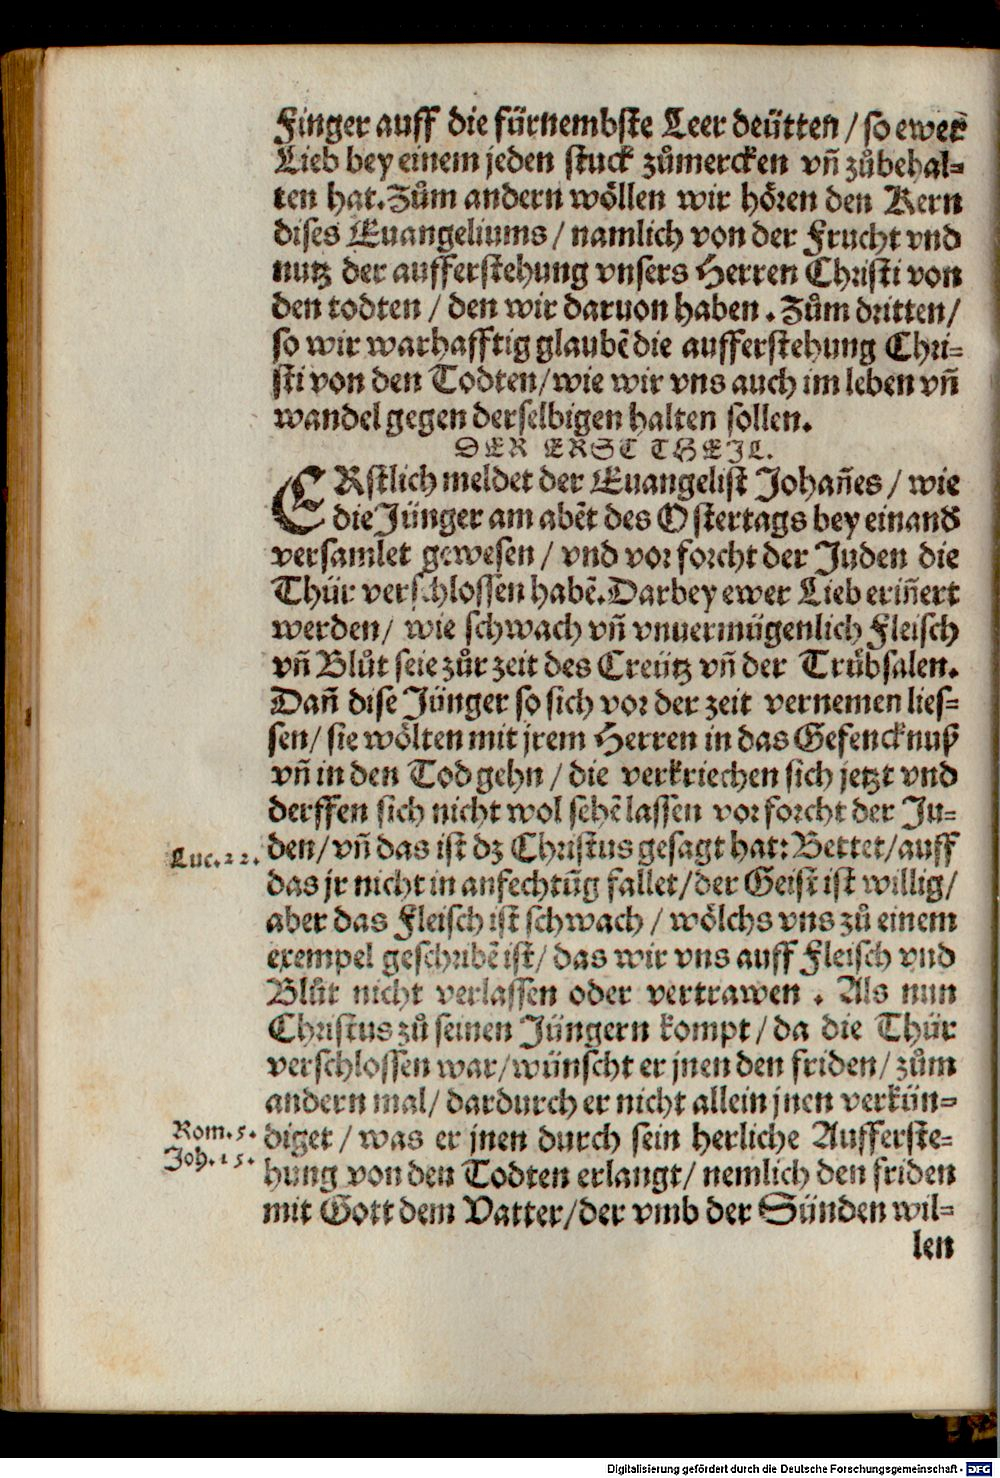 Finger auff die fürnembste Leer deütten / so ewer
Lieb bey einem jeden stuck zůmercken vñ zůbehal-
ten hat. Zům andern wöllen wir hören den Kern
dises Euangeliums / namlich von der Frucht vnd
nutz der aufferstehung vnsers Herren Christi von
den todten / den wir daruon haben. Zům dritten /
so wir warhafftig glaubẽ die aufferstehung Chri-
sti von den Todten / wie wir vns auch im leben vñ
wandel gegen derselbigen halten sollen.
DER ERST THEIL.
ERstlich meldet der Euangelist Johañes / wie
die Jünger am abẽt des Ostertags bey einand
versamlet gewesen / vnd vor forcht der Juden die
Thür verschlossen habẽ. Darbey ewer Lieb eriñert
werden / wie schwach vñ vnuermügenlich Fleisch
vñ Blůt seie zůr zeit des Creütz vñ der Trübsalen.
Dañ dise Jünger so sich vor der zeit vernemen lies-
sen / sie wölten mit jrem Herren in das Gefencknuß
vñ in den Tod gehn / die verkriechen sich jetzt vnd
derffen sich nicht wol sehẽ lassen vor forcht der Ju-
Luc. 22. den / vñ das ist dz Christus gesagt hat: Bettet / auff
das jr nicht in anfechtũg fallet / der Geist ist willig /
aber das Fleisch ist schwach / wölchs vns zů einem
exempel geschribẽ ist / das wir vns auff Fleisch vnd
Blůt nicht verlassen oder vertrawen. Als nun
Christus zů seinen Jüngern kompt / da die Thür
verschlossen war / wünscht er jnen den friden / zům
andern mal / dardurch er nicht allein jnen verkün-
Rom. 5. diget / was er jnen durch sein herliche Aufferste-
Joh. 15. hung von den Todten erlangt / nemlich den friden
mit Gott dem Vatter / der vmb der Sünden wil-
len
Digitalisierung gefördert durch die Deutsche Forschungsgemeinschaft - DFG